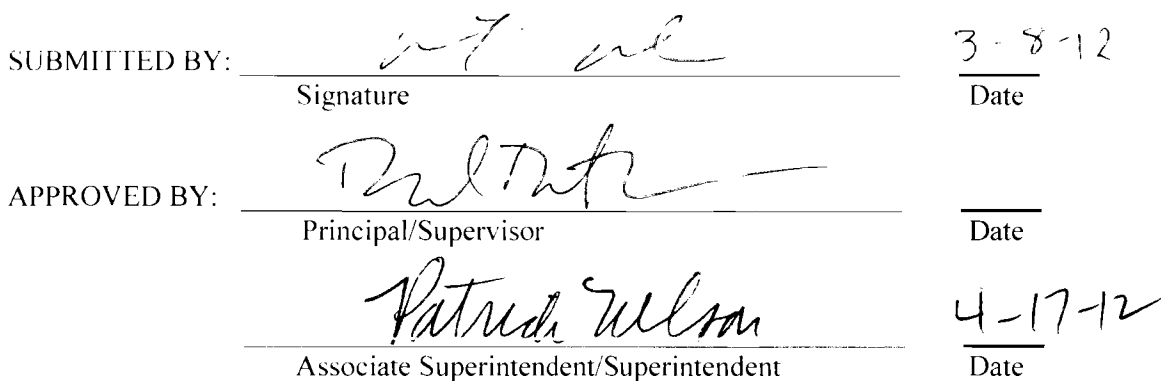 SUBMITTED BY: 3-8-12
Signature Date
APPROVED BY:
Principal/Supervisor Date
Patrick Wilson 4-17-12
Associate Superintendent/Superintendent Date